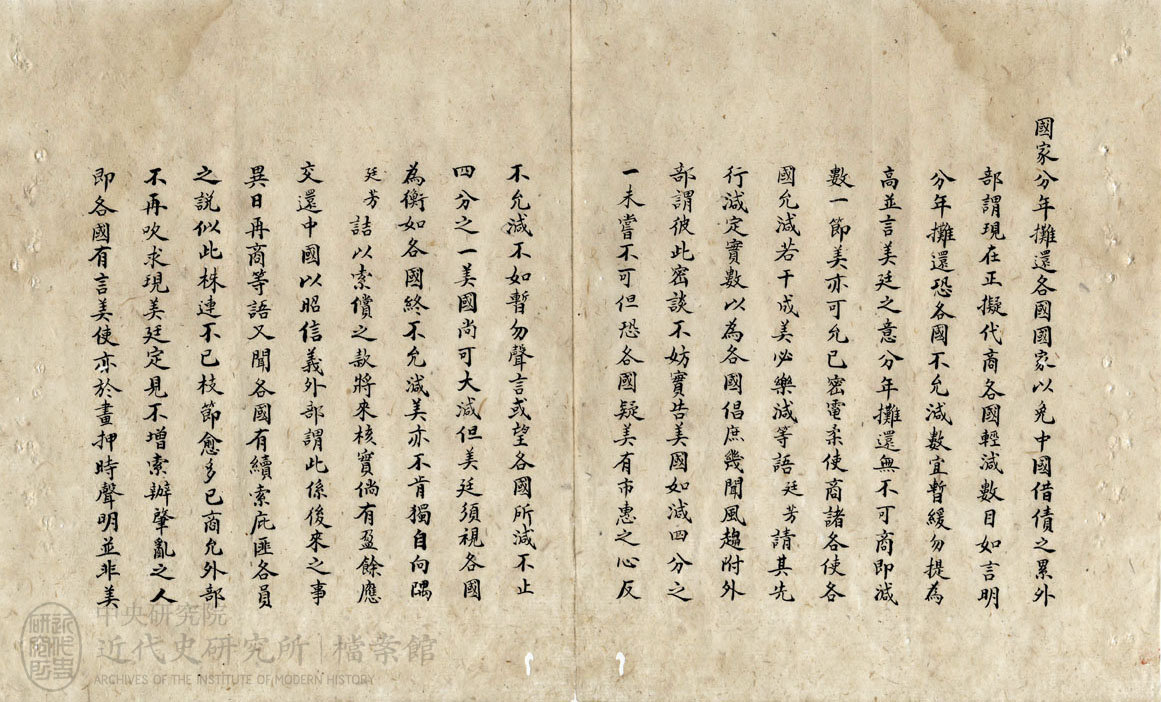 國家分年攤還各國國家以免中國借債之累外
部謂現在正擬代商各國輕減數目如言明
分年攤還恐各國不允減數宜暫緩勿提為
高並言美廷之意分年攤還無不可商即減
數一節美亦可允已密電柔使商諸各使各
國允減若干成美必樂減等語廷芳請其先
行減定實數以為各國倡庶幾聞風趨附外
部謂彼此密談不妨實告美國如減四分之
一未嘗不可但恐各國疑美有市惠之心反
不允減不如暫勿聲言或望各國所減不止
四分之一美國尚可大減但美廷須視各國
為衡如各國終不允減美亦不肯獨自向隅
廷芳詰以索償之款將來核實倘有盈餘應
交還中國以昭信義外部謂此係後來之事
異日再商等語又聞各國有續索庇匪各員
之說似此株連不已枝節愈多已商允外部
不再吹求現美廷定見不增索辦肇亂之人
即各國有言美使亦於畫押時聲明並非美
中央研究院
近代史研究所 檔案館
ARCHIVES OF THE INSTITUTE OF MODERN HISTORY